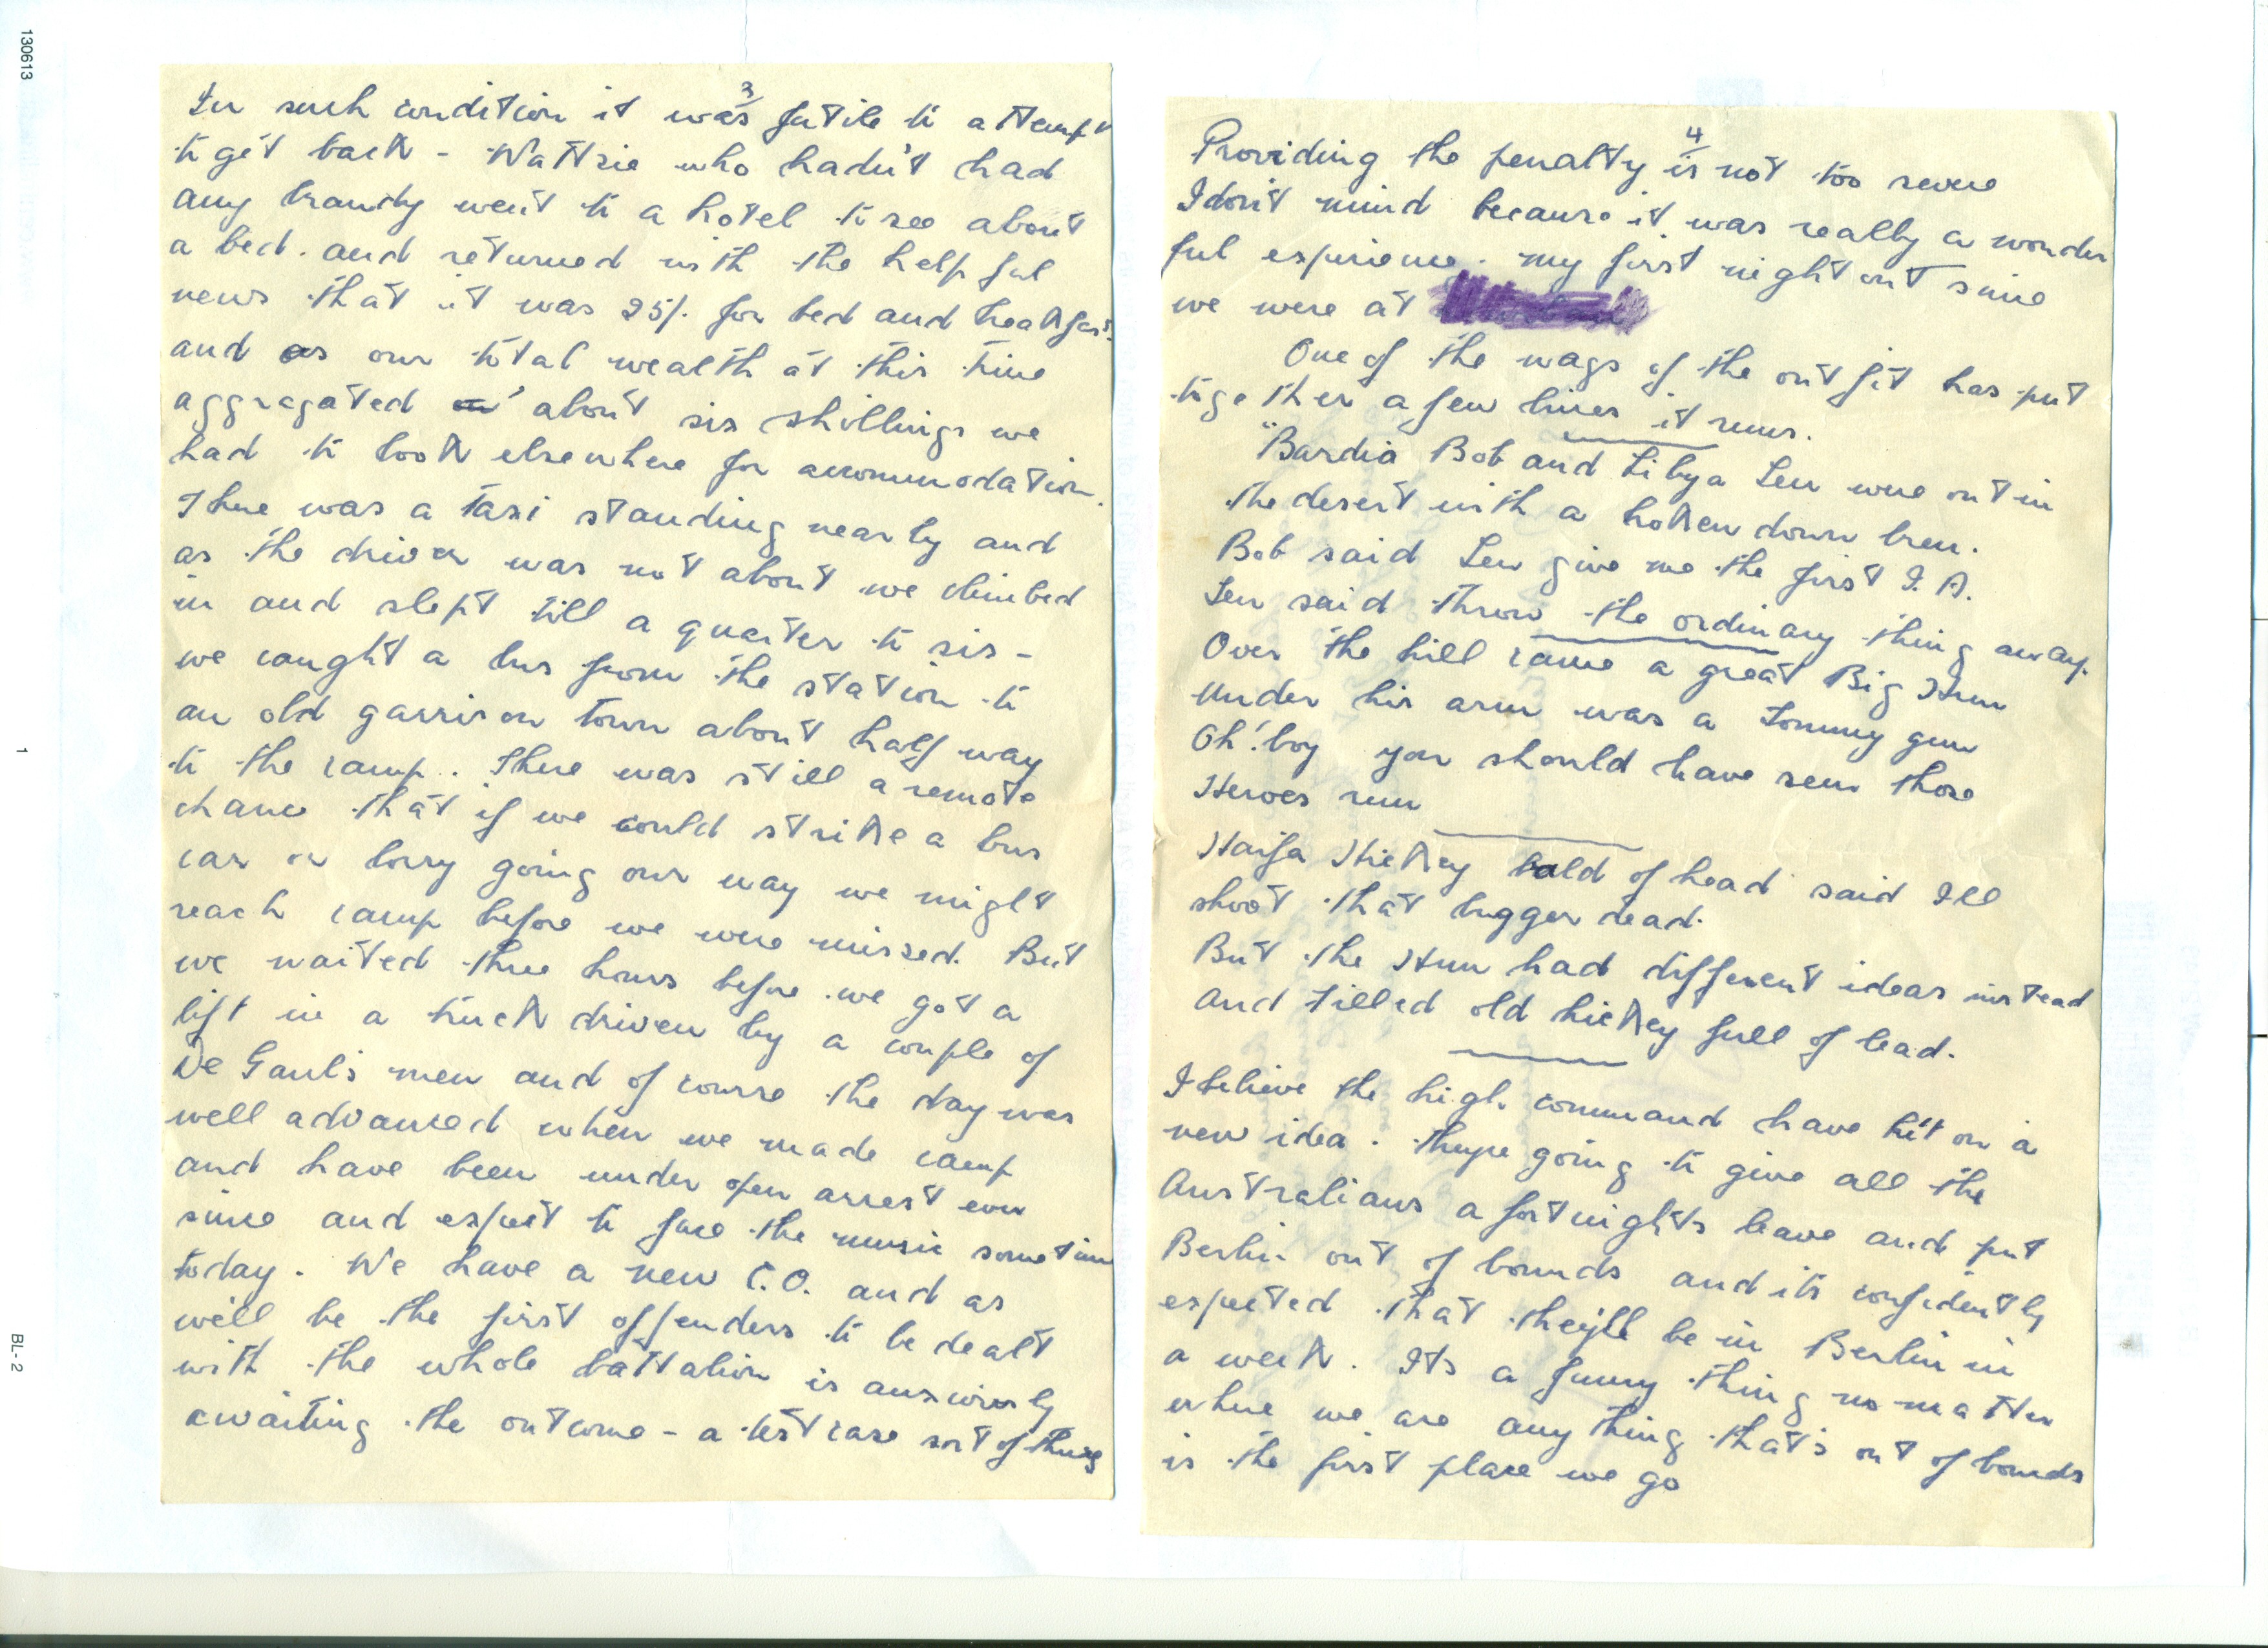 130613
1
BL-2
3
In such condition it was futile to attempt
to get back - Wattsie who hadn't had
any brandy went to a hotel to see about
a bed. and returned with the helpful
news that it was 25/. for bed and breakfast
and as our total wealth at this time
aggregated about six shillings we
had to look elsewhere for accommodation.
There was a taxi standing nearby and
as the driver was not about we climbed
in and slept till a quarter to six -
we caught a bus from the station to
an old garrison town about half way
to the camp. There was still a remote
chance that if we could strike a bus
car or lorry going our way we might
reach camp before we were missed. But
we waited three hours before we got a
lift in a truck driven by a couple of
De Gaul's men and of course the day was
well advanced when we made camp
and have been under open arrest ever
since and expect to face the music sometime
today. We have a new C.O. and as
we'll be the first offenders to be dealt
with the whole battalion is anxiously
awaiting the outcome - a test case sort of thing
4
Providing the penalty is not too severe
I don't mind because it was really a wonder
ful experience. my first night out since
we were at
One of the wags of the outfit has put
together a few lines it runs.
"Bardia Bob and Libya Len were out in
the desert with a broken down bren.
Bob said Len give me the first I.A.
Len said throw the ordinary thing away.
Over the hill came a great Big Hun
Under his arm was a Tommy gun
Oh! boy you should have seen those
Heroes run
Haifa Hickey bald of head said Ill
shoot that bugger dead.
But the Hun had different ideas instead
and filled old hickey full of lead.
I believe the high command have hit on a
new idea. theyre going to give all the
Australians a fortnights leave and put
Berlin out of bounds and its confidently
expected that they'll be in Berlin in
a week. Its a funny thing no matter
where we are any thing that's out of bounds
is the first place we go